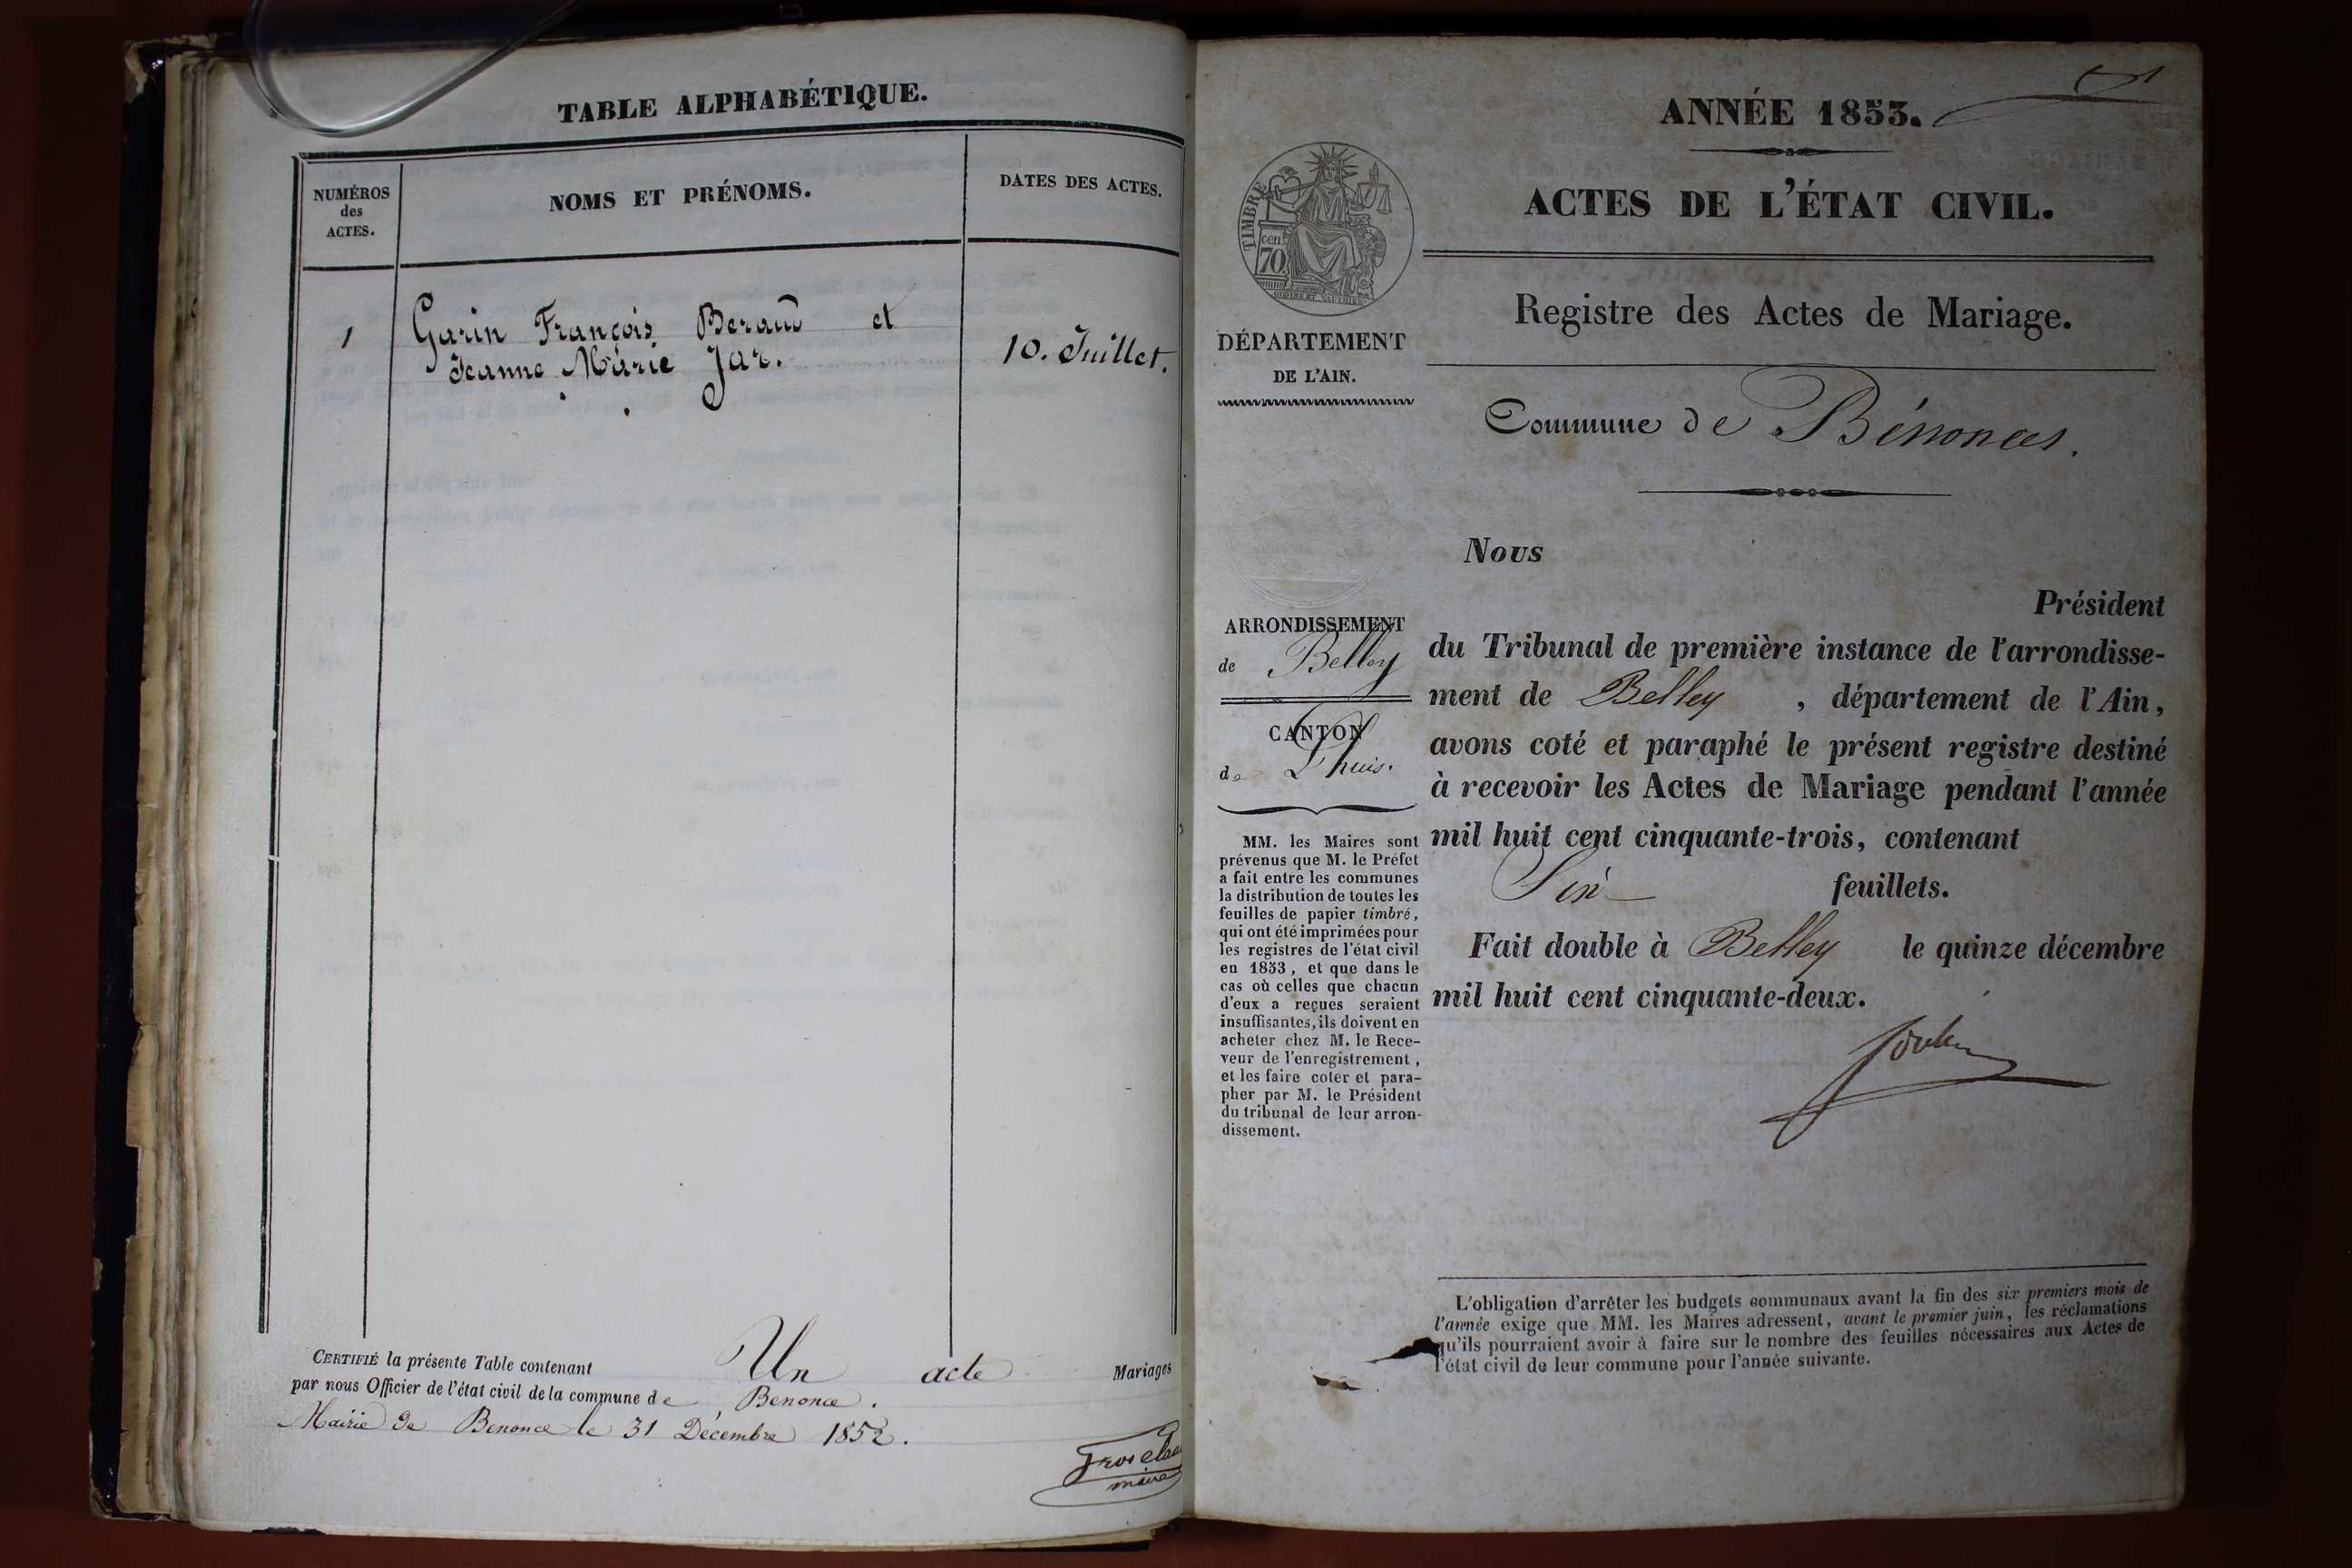 TABLE ALPHABÉTIQUE.
NUMÉROS
des
ACTES.
NOMS ET PRÉNOMS.
DATES DES ACTES.
1
Garin François Beraud et
Jeanne Marie Jar.
10. Juillet.
CERTIFIÉ la présente Table contenant Un acte Mariages
par nous Officier de l'état civil de la commune de Benonce.
Mairie de Benonce le 31 Décembre 1852.
maire
ANNÉE 1853.
ACTES DE L'ÉTAT CIVIL.
TIMBRE
cen.
70
Registre des Actes de Mariage.
DÉPARTEMENT
DE L'AIN.
Commune de Bénonces.
ARRONDISSEMENT
de Belley
CANTON
de Lhuis.
MM. les Maires sont
prévenus que M. le Préfet
a fait entre les communes
la distribution de toutes les
feuilles de papier timbré,
qui ont été imprimées pour
les registres de l'état civil
en 1853, et que dans le
cas où celles que chacun
d'eux a reçues seraient
insuffisantes, ils doivent en
acheter chez M. le Rece-
veur de l'enregistrement,
et les faire coter et para-
pher par M. le Président
du tribunal de leur arron-
dissement.
Nous
Président
du Tribunal de première instance de l'arrondisse-
ment de Belley, département de l'Ain,
avons coté et paraphé le présent registre destiné
à recevoir les Actes de Mariage pendant l'année
mil huit cent cinquante-trois, contenant
Six feuillets.
Fait double à Belley le quinze décembre
mil huit cent cinquante-deux.
L'obligation d'arrêter les budgets communaux avant la fin des six premiers mois de
l'année exige que MM. les Maires adressent, avant le premier juin, les réclamations
qu'ils pourraient avoir à faire sur le nombre des feuilles nécessaires aux Actes de
l'état civil de leur commune pour l'année suivante.